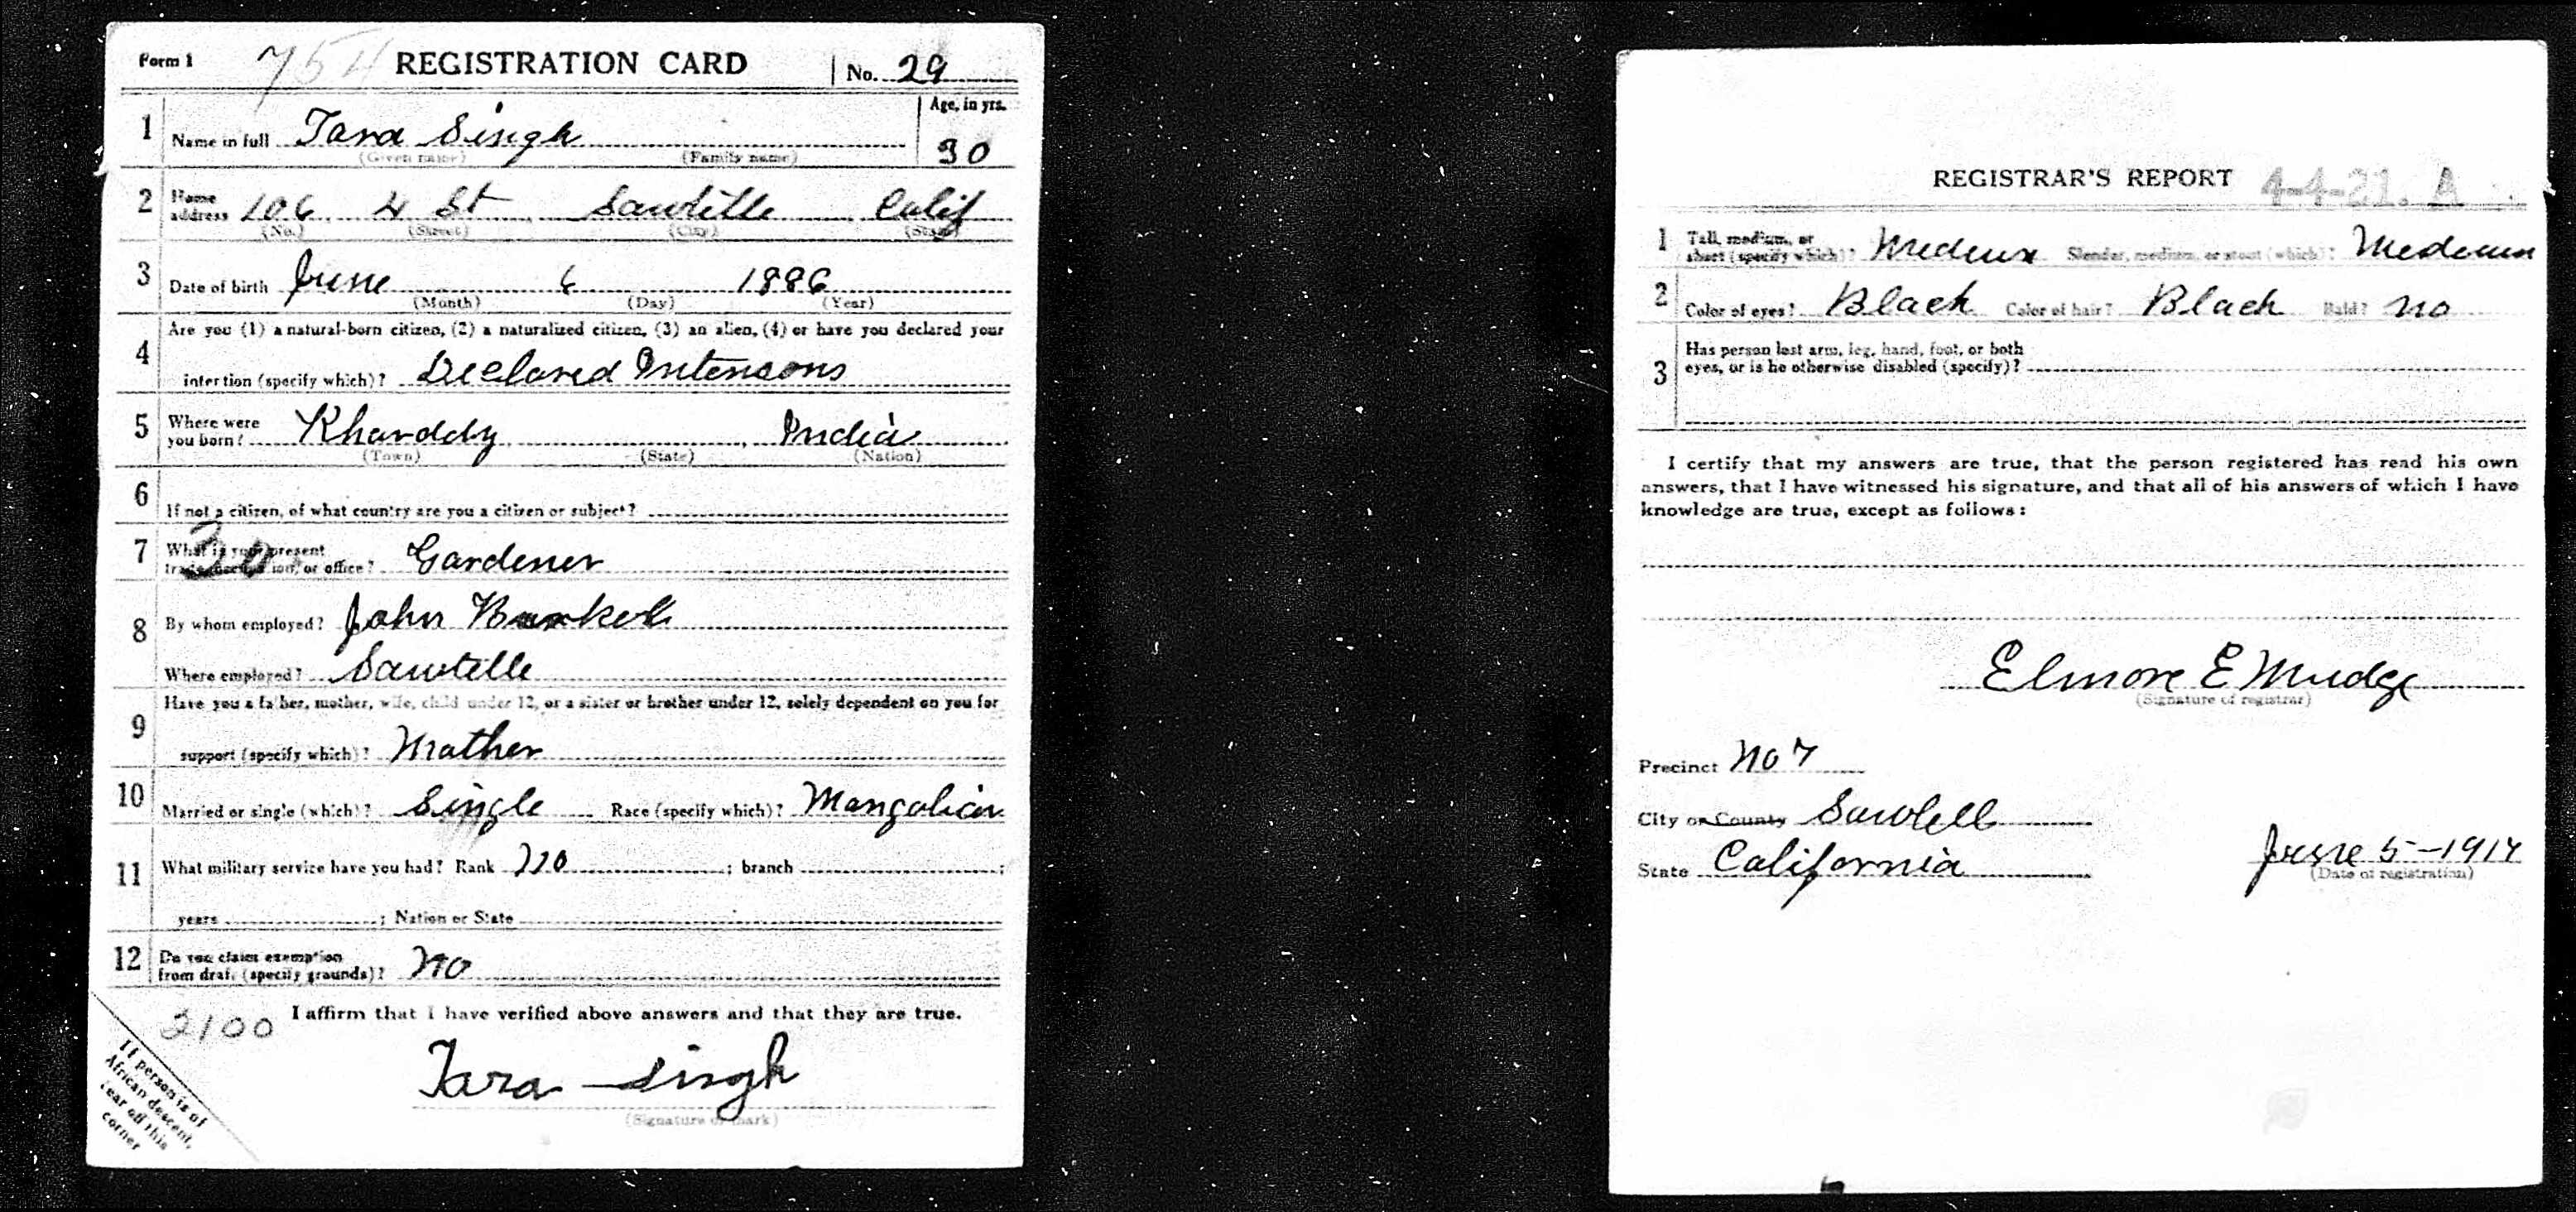 Form 1 754 REGISTRATION CARD No. 29
1 Name in full Tara Singh Age, in yrs. 30
(Given name) (Family name)
2 Home address 106 4 St Sawtelle Calif
(No.) (Street) (City) (State)
3 Date of birth June 6 1886
(Month) (Day) (Year)
4 Are you (1) a natural-born citizen, (2) a naturalized citizen, (3) an alien, (4) or have you declared your
intention (specify which)? Declared Intensons
5 Where were you born? Kharddy, India
(Town) (State) (Nation)
6 If not a citizen, of what country are you a citizen or subject?
30
7 What is your present trade, occupation, or office? Gardener
8 By whom employed? John
Where employed? Sawtelle
9 Have you a father, mother, wife, child under 12, or a sister or brother under 12, solely dependent on you for
support (specify which)? Mother
10 Married or single (which)? Single Race (specify which)? Mangolian
11 What military service have you had? Rank no ; branch ;
years ; Nation or State
12 Do you claim exemption from draft (specify grounds)? No
2100 I affirm that I have verified above answers and that they are true.
Tara Singh
(Signature or mark)
If person is of
African descent,
tear off this
corner
REGISTRAR'S REPORT 4-4-21. A
1 Tall, medium, or short (specify which)? Medium Slender, medium, or stout (which)? Medium
2 Color of eyes? Black Color of hair? Black Bald? No
3 Has person lost arm, leg, hand, foot, or both
eyes, or is he otherwise disabled (specify)?
I certify that my answers are true, that the person registered has read his own
answers, that I have witnessed his signature, and that all of his answers of which I have
knowledge are true, except as follows:
Elmore E Mudge
(Signature of registrar)
Precinct No 7
City or County Sawtell
State California June 5-1917
(Date of registration)